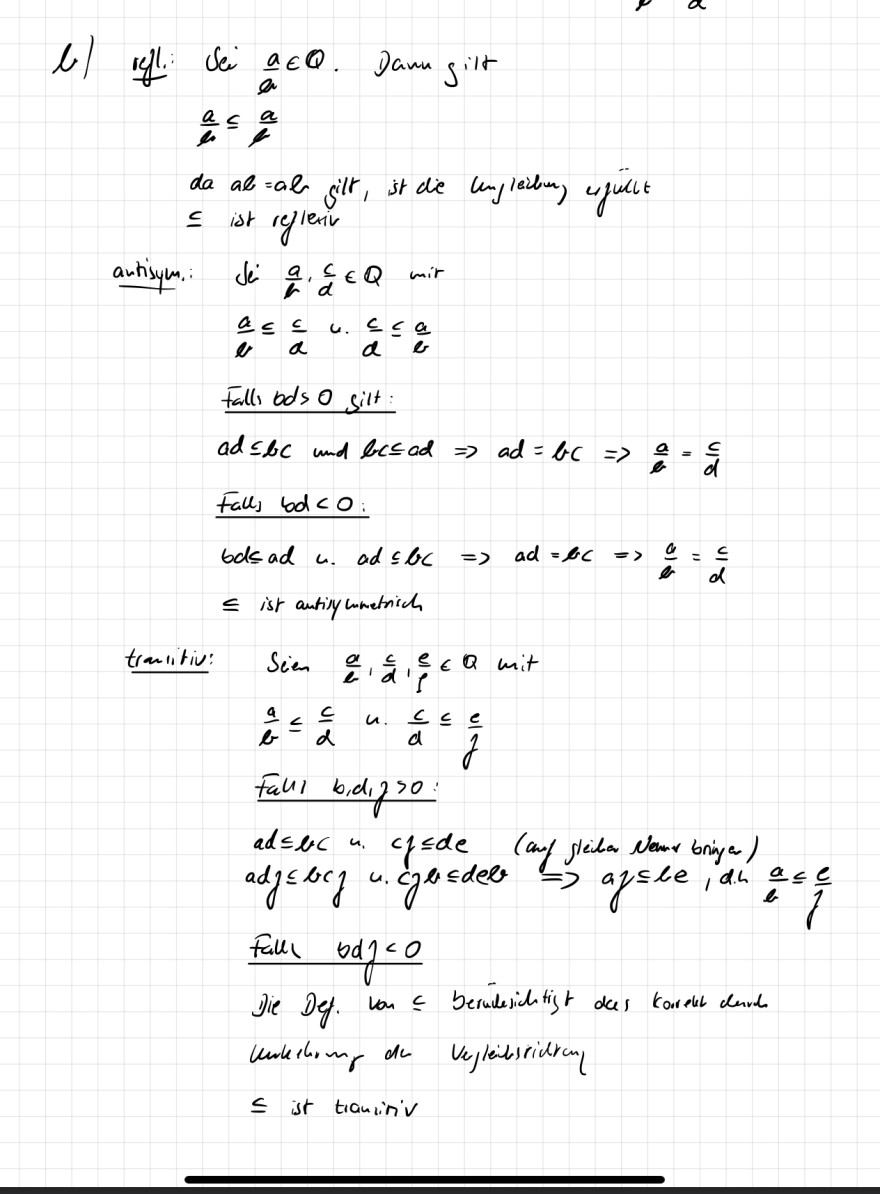 d
b) refl.: Sei a/b ∈ Q. Dann gilt
a/b ≤ a/b
da ab = ab gilt, ist die Ungleichung erfüllt
≤ ist reflexiv
antisym.: Sei a/b, c/d ∈ Q mit
a/b ≤ c/d u. c/d ≤ a/b
Falls bd > 0 gilt:
ad ≤ bc und bc ≤ ad => ad = bc => a/b = c/d
Falls bd < 0:
bd ≤ ad u. ad ≤ bc => ad = bc => a/b = c/d
≤ ist antisymmetrisch
transitiv: Seien a/b, c/d, e/f ∈ Q mit
a/b ≤ c/d u. c/d ≤ e/f
Falls b,d,f > 0:
ad ≤ bc u. cf ≤ de (auf gleichen Nenner bringen)
adf ≤ bcf u. cfb ≤ deb => af ≤ be, d.h. a/b ≤ e/f
Falls bdf < 0
Die Def. von ≤ berücksichtigt das korrekt durch
Umkehrung der Vergleichsrichtung
≤ ist transitiv